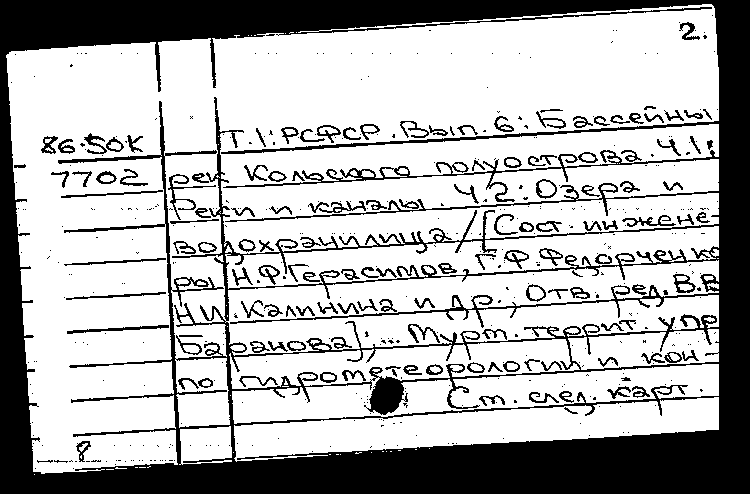 2.
86-50К Т.1: РСФСР. Вып. 6: Бассейны
7702 рек Кольского полуострова. Ч.1:
Реки и каналы. Ч.2: Озера и
водохранилища / [Сост. инжене-
ры Н.Ф.Герасимов, Г.Ф.Федорченко
Н.И.Калинина и др.; Отв. ред. В.В
Баранова]; ... Мурм. террит. упр
по гидрометеорологии и кон-
См. след. карт.
8